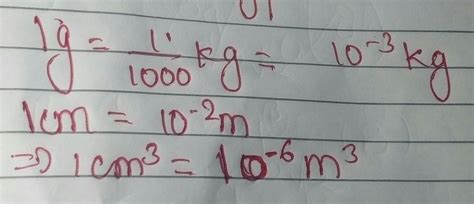 1g = 1/1000 kg = 10⁻³ kg
1cm = 10⁻² m
⇒ 1cm³ = 10⁻⁶ m³